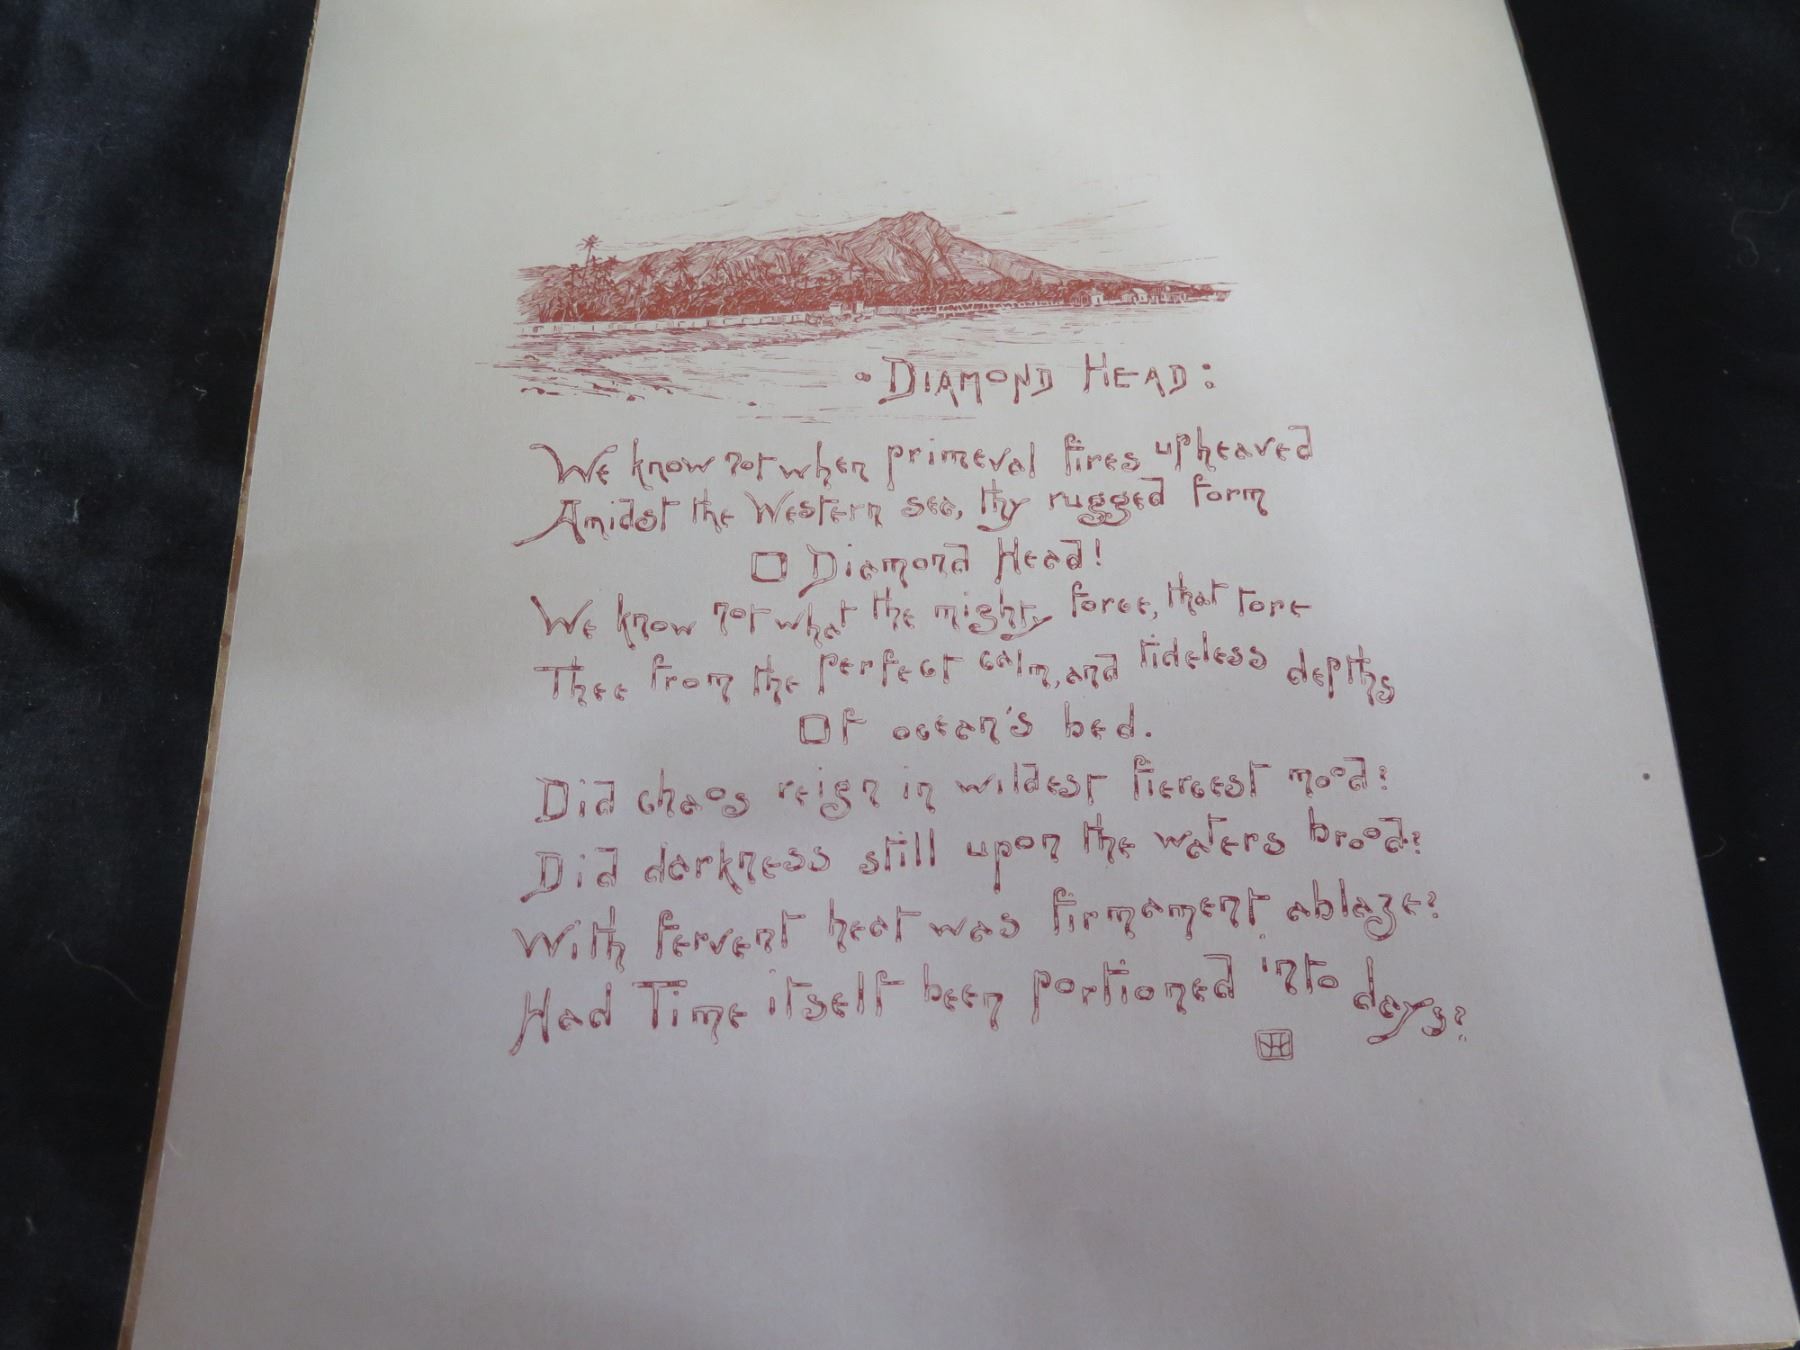 DIAMOND HEAD:
We know not when primeval fires upheaved
Amidst the Western sea, thy rugged form
O Diamond Head!
We know not what the mighty force, that tore
Thee from the perfect calm, and tideless depths
Of ocean's bed.
Did chaos reign in wildest fiercest mood?
Did darkness still upon the waters brood?
With fervent heat was firmament ablaze?
Had Time itself been portioned into days?